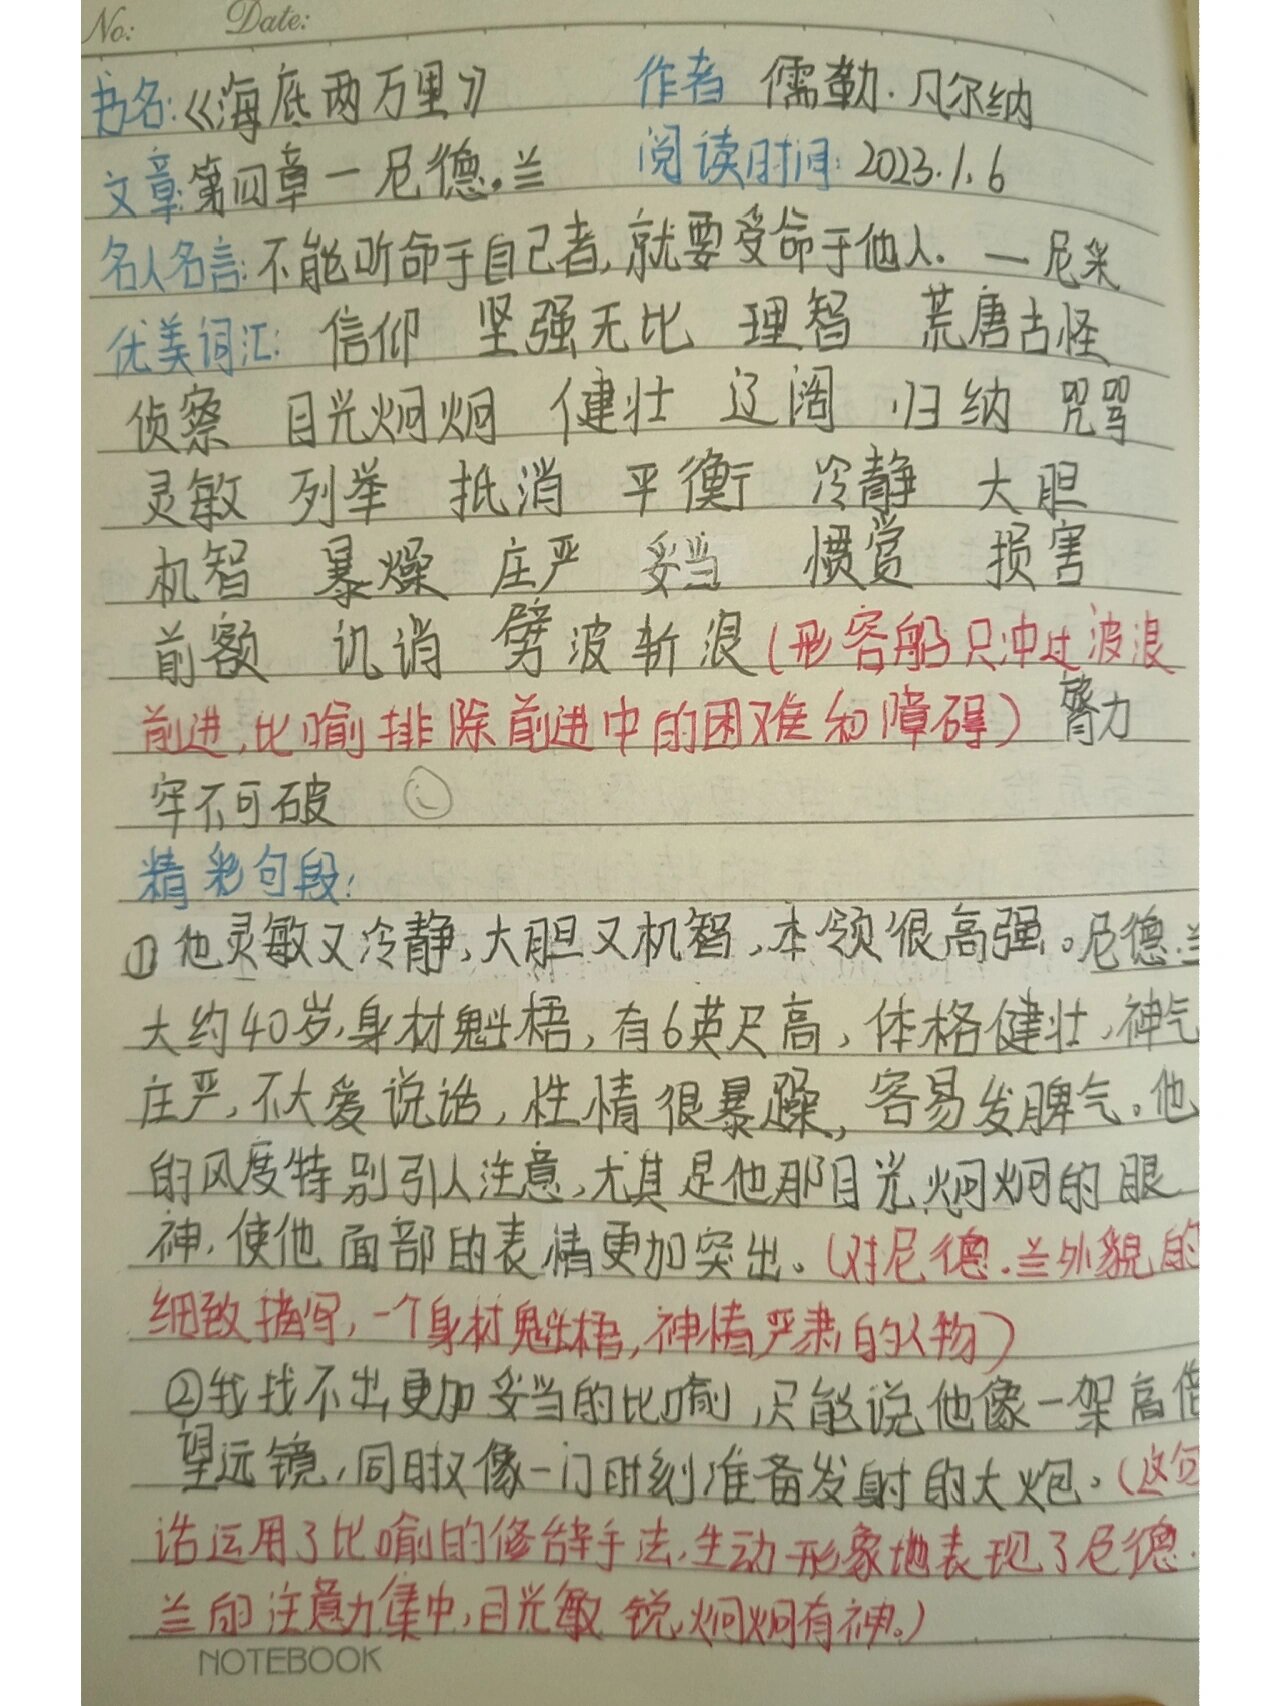 No: Date:
书名:《海底两万里》 作者 儒勒·凡尔纳
文章:第四章一尼德·兰 阅读时间:2023.1.6
名人名言:不能听命于自己者,就要受命于他人. —尼采
优美词汇: 信仰 坚强无比 理智 荒唐古怪
侦察 目光炯炯 健壮 辽阔 归纳 咒骂
灵敏 列举 抵消 平衡 冷静 大胆
机智 暴燥 庄严 妥当 惯赏 损害
前额 讥诮 劈波斩浪(形容船只冲过波浪
前进,比喻排除前进中的困难和障碍) 膂力
牢不可破
精彩句段:
①他灵敏又冷静,大胆又机智,本领很高强。尼德.兰
大约40岁,身材魁梧,有6英尺高,体格健壮,神气
庄严,不大爱说话,性情很暴躁,容易发脾气。他
的风度特别引人注意,尤其是他那目光炯炯的眼
神,使他面部的表情更加突出。(对尼德.兰外貌的
细致描写,一个身材魁梧,神情严肃的人物)
②我找不出更加妥当的比喻,只能说他像一架高倍
望远镜,同时又像一门时刻准备发射的大炮。(这句
话运用了比喻的修辞手法,生动形象地表现了尼德.
兰的注意力集中,目光敏锐,炯炯有神。)
NOTEBOOK